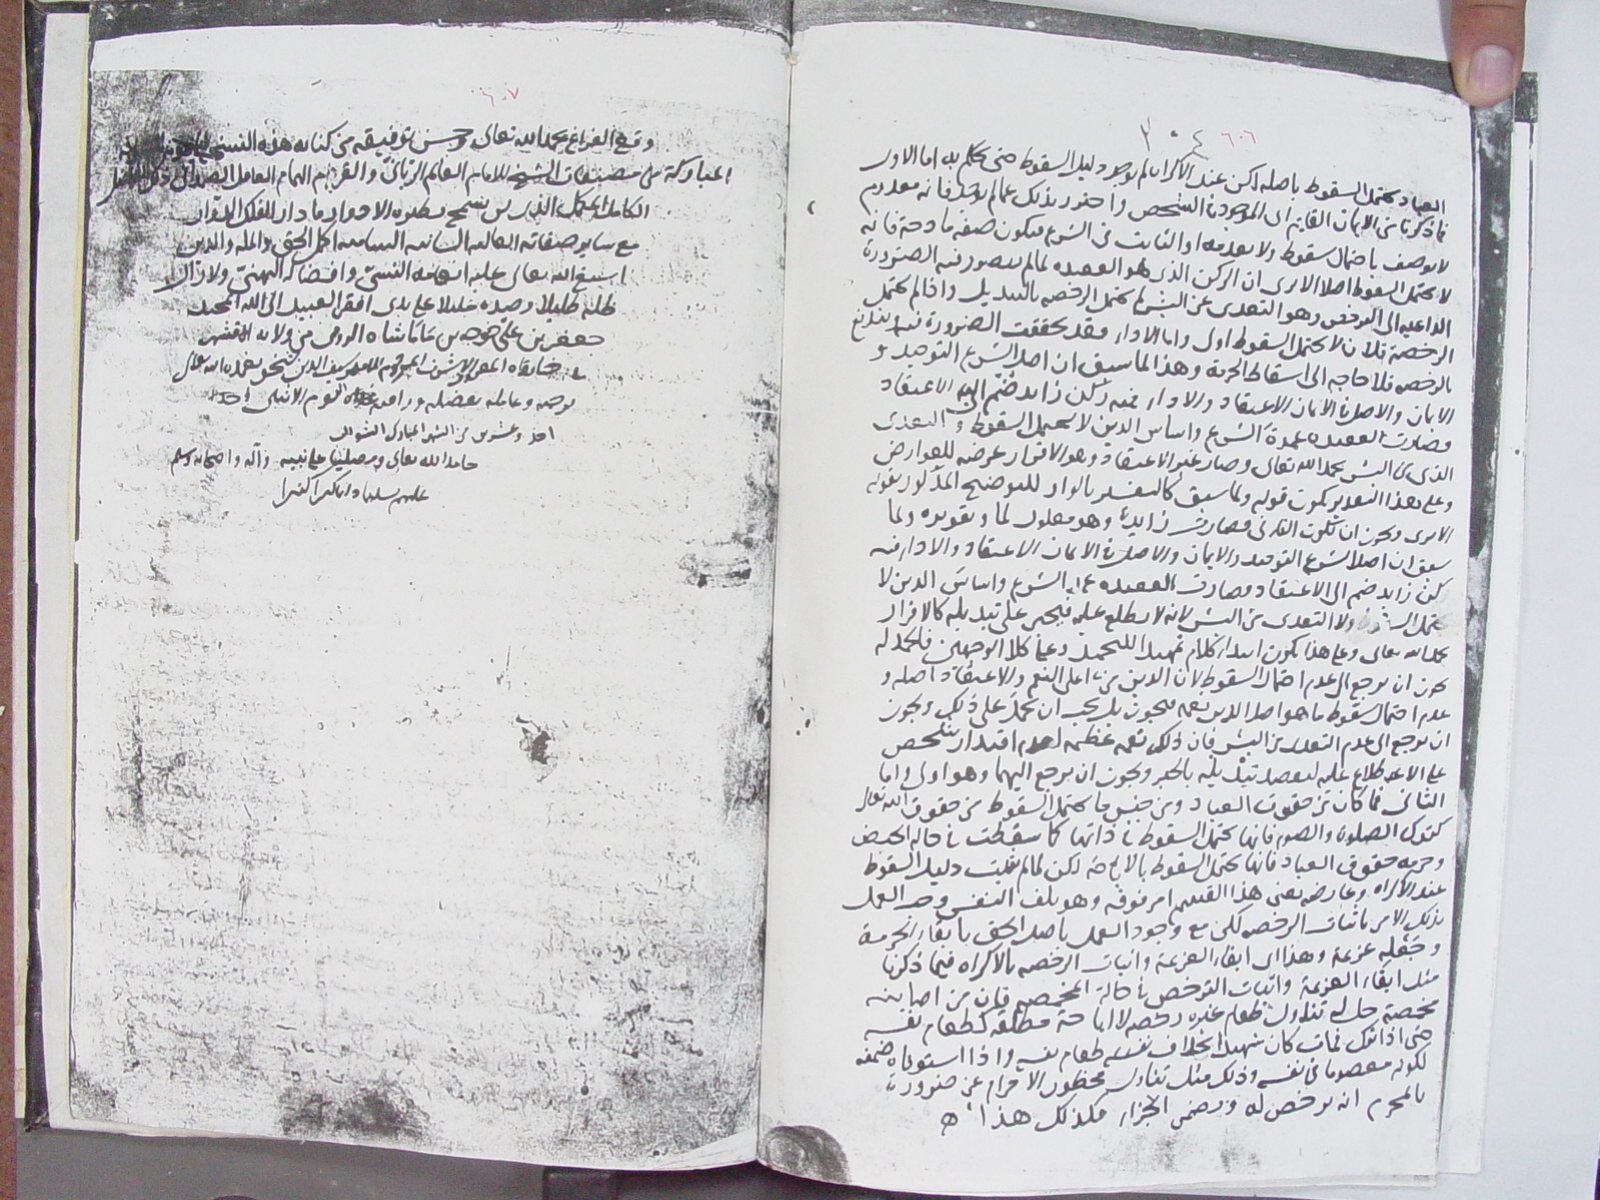 ٣٠٤ ٦٠٦
العباد يحتمل السقوط باصله لكن عند الاكراه لم يوجد دليل السقوط حتى يحكم به اما الاول
فما ذكرنا من الايمان القايم اى الموجود الشخص واحترز بذلك عمالم يوجد فانه معدوم
لا يوصف باحتمال سقوط ولا بعدمه او الثابت فى الشرع فيكون صفة مادحة فانه
لا يحتمل السقوط اصلا الا يرى ان الركن الذى هو العقيده لمالم يتصور فيه الضرورة
الداعيه الى الترخص وهو التعدى عن البشر لم يحتمل الرخصه بالتبديل واذا لم يحتمل
الرخصة فلان لا يحتمل السقوط اولى واما الاداء فقد تحققت الضرورة فيه يندفع
بالرخصه فلا حاجه الى اسقاط الحرمة وهذا لما سبق ان اصل الشرع التوحيد و
الايمان والاصل فى الايمان الاعتقاد والاداء فيه ركن زايد ضم اليه الاعتقاد
وصارت العقيده عمدة الشرع واساس الدين لا يحتمل السقوط و التعدى
الذى من البشر بحمد الله تعالى وصار غير الاعتقاد وهو الاقرار عرضه للعوارض
وعلى هذا التقدير يكون قوله ولما سبق كالتفسير بالواو للتوضيح المذكور بقوله
الا يرى ويجوز ان يكون الفاء فى فصارت زايدة وهو معلول لما وتقديره ولما
سبق ان اصل الشرع التوحيد والايمان والاصل فى الايمان الاعتقاد والاداء فيه
ركن زايد ضم الى الاعتقاد وصارت العقيده عماد الشرع واساس الدين لا
يحتمل السقوط ولا التعدى من البشر لانه لا يطلع عليه فيجبر على تبديله كالاقرار
بحمد الله تعالى وعلى هذا يكون ابتداء كلام تمهيدا للتحميد وعلى كلا الوجهين فالحمد له
يجوز ان يرجع الى عدم احتمال السقوط لان الدين من اعلى النعم والاعتقاد اصله و
عدم احتمال سقوط ما هو اصل الدين نعمه فيجوز بل يجب ان يحمد على ذلك ويجوز
ان يرجع الى عدم التعدى من البشر فان ذلك نعمه عظيمه لعدم اقتدار شخص
على الاطلاع عليه ليقصد تبديله بالجبر ويجوز ان يرجع اليهما وهو اولى واما
الثانى فما كان من حقوق العباد ومن جنس ما يحتمل السقوط من حقوق الله تعالى
كترك الصلوة والصوم فانها يحتمل السقوط فى ذاتها كما سقطت فى حالة الحيض
وحرمه حقوق العباد فانها يحتمل السقوط بالاباحة لكن لمالم يثبت دليل السقوط
عند الاكراه وعارضه يعنى هذا القسم امر فوقه وهو تلف النفس وجب العمل
بذلك الامر باثبات الرخصه لكن مع وجود العمل باصل الحق بابقاء الحرمة
وجعله عزيمة وهذا اى ابقاء العزيمة واثبات الرخصه بالاكراه فيما ذكرنا
مثل ابقاء العزيمة واثبات الترخص فى حالة المخمصه فان من اصابته
مخمصة حل له تناول طعام غيره رخصه لا اباحة مطلقه كطعام نفسه
حتى اذا ترك فمات كان شهيدا بخلاف نفسه طعام نفسه واذا استوفاه ضمنه
لكونه معصوما فى نفسه وذلك مثل تناول محظور الاحرام عن ضرورة
بالمحرم انه يرخص له ويضمن الجزاء فكذلك هذا
٦٠٧
وقع الفراغ بحمد الله تعالى وحسن توفيقه من كتابه هذه النسخه
المباركة من مصنفات الشيخ الامام العالم الربانى والقرم الهمام العامل الصمدانى
الكامل لم يسمح بنظيره الادوار مادار الفلك الدوار
مع ساير صفاته العاليه السنيه الساميه اكمل الحق والمله والدين
اسبغ الله تعالى عليه انعامه السنى وافضاله البهى ولا زال
ظله ظليلا وضده ذليلا على يدى افقر العبيد الى الله المجيد
جعفر بن على خوجه بن پاشاه الرومى من ولايه الاقشهر
خانقاه المقر الاشرف المرحوم سيف الدين شيخو تغمده الله تعالى
برحمته وعامله بفضله ورافته يوم الاثنين
احد وعشرين من الشهر المبارك الشوال
حامدا لله تعالى ومصليا على نبيه وآله واصحابه وسلم
عليهم تسليما دايما كثيرا كثيرا